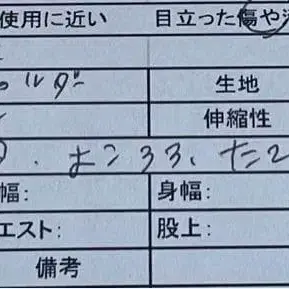 使用に近い 目立った傷や
ルダー 生地
伸縮性
. よこ33、たて2
幅: 身幅:
エスト: 股上:
備考